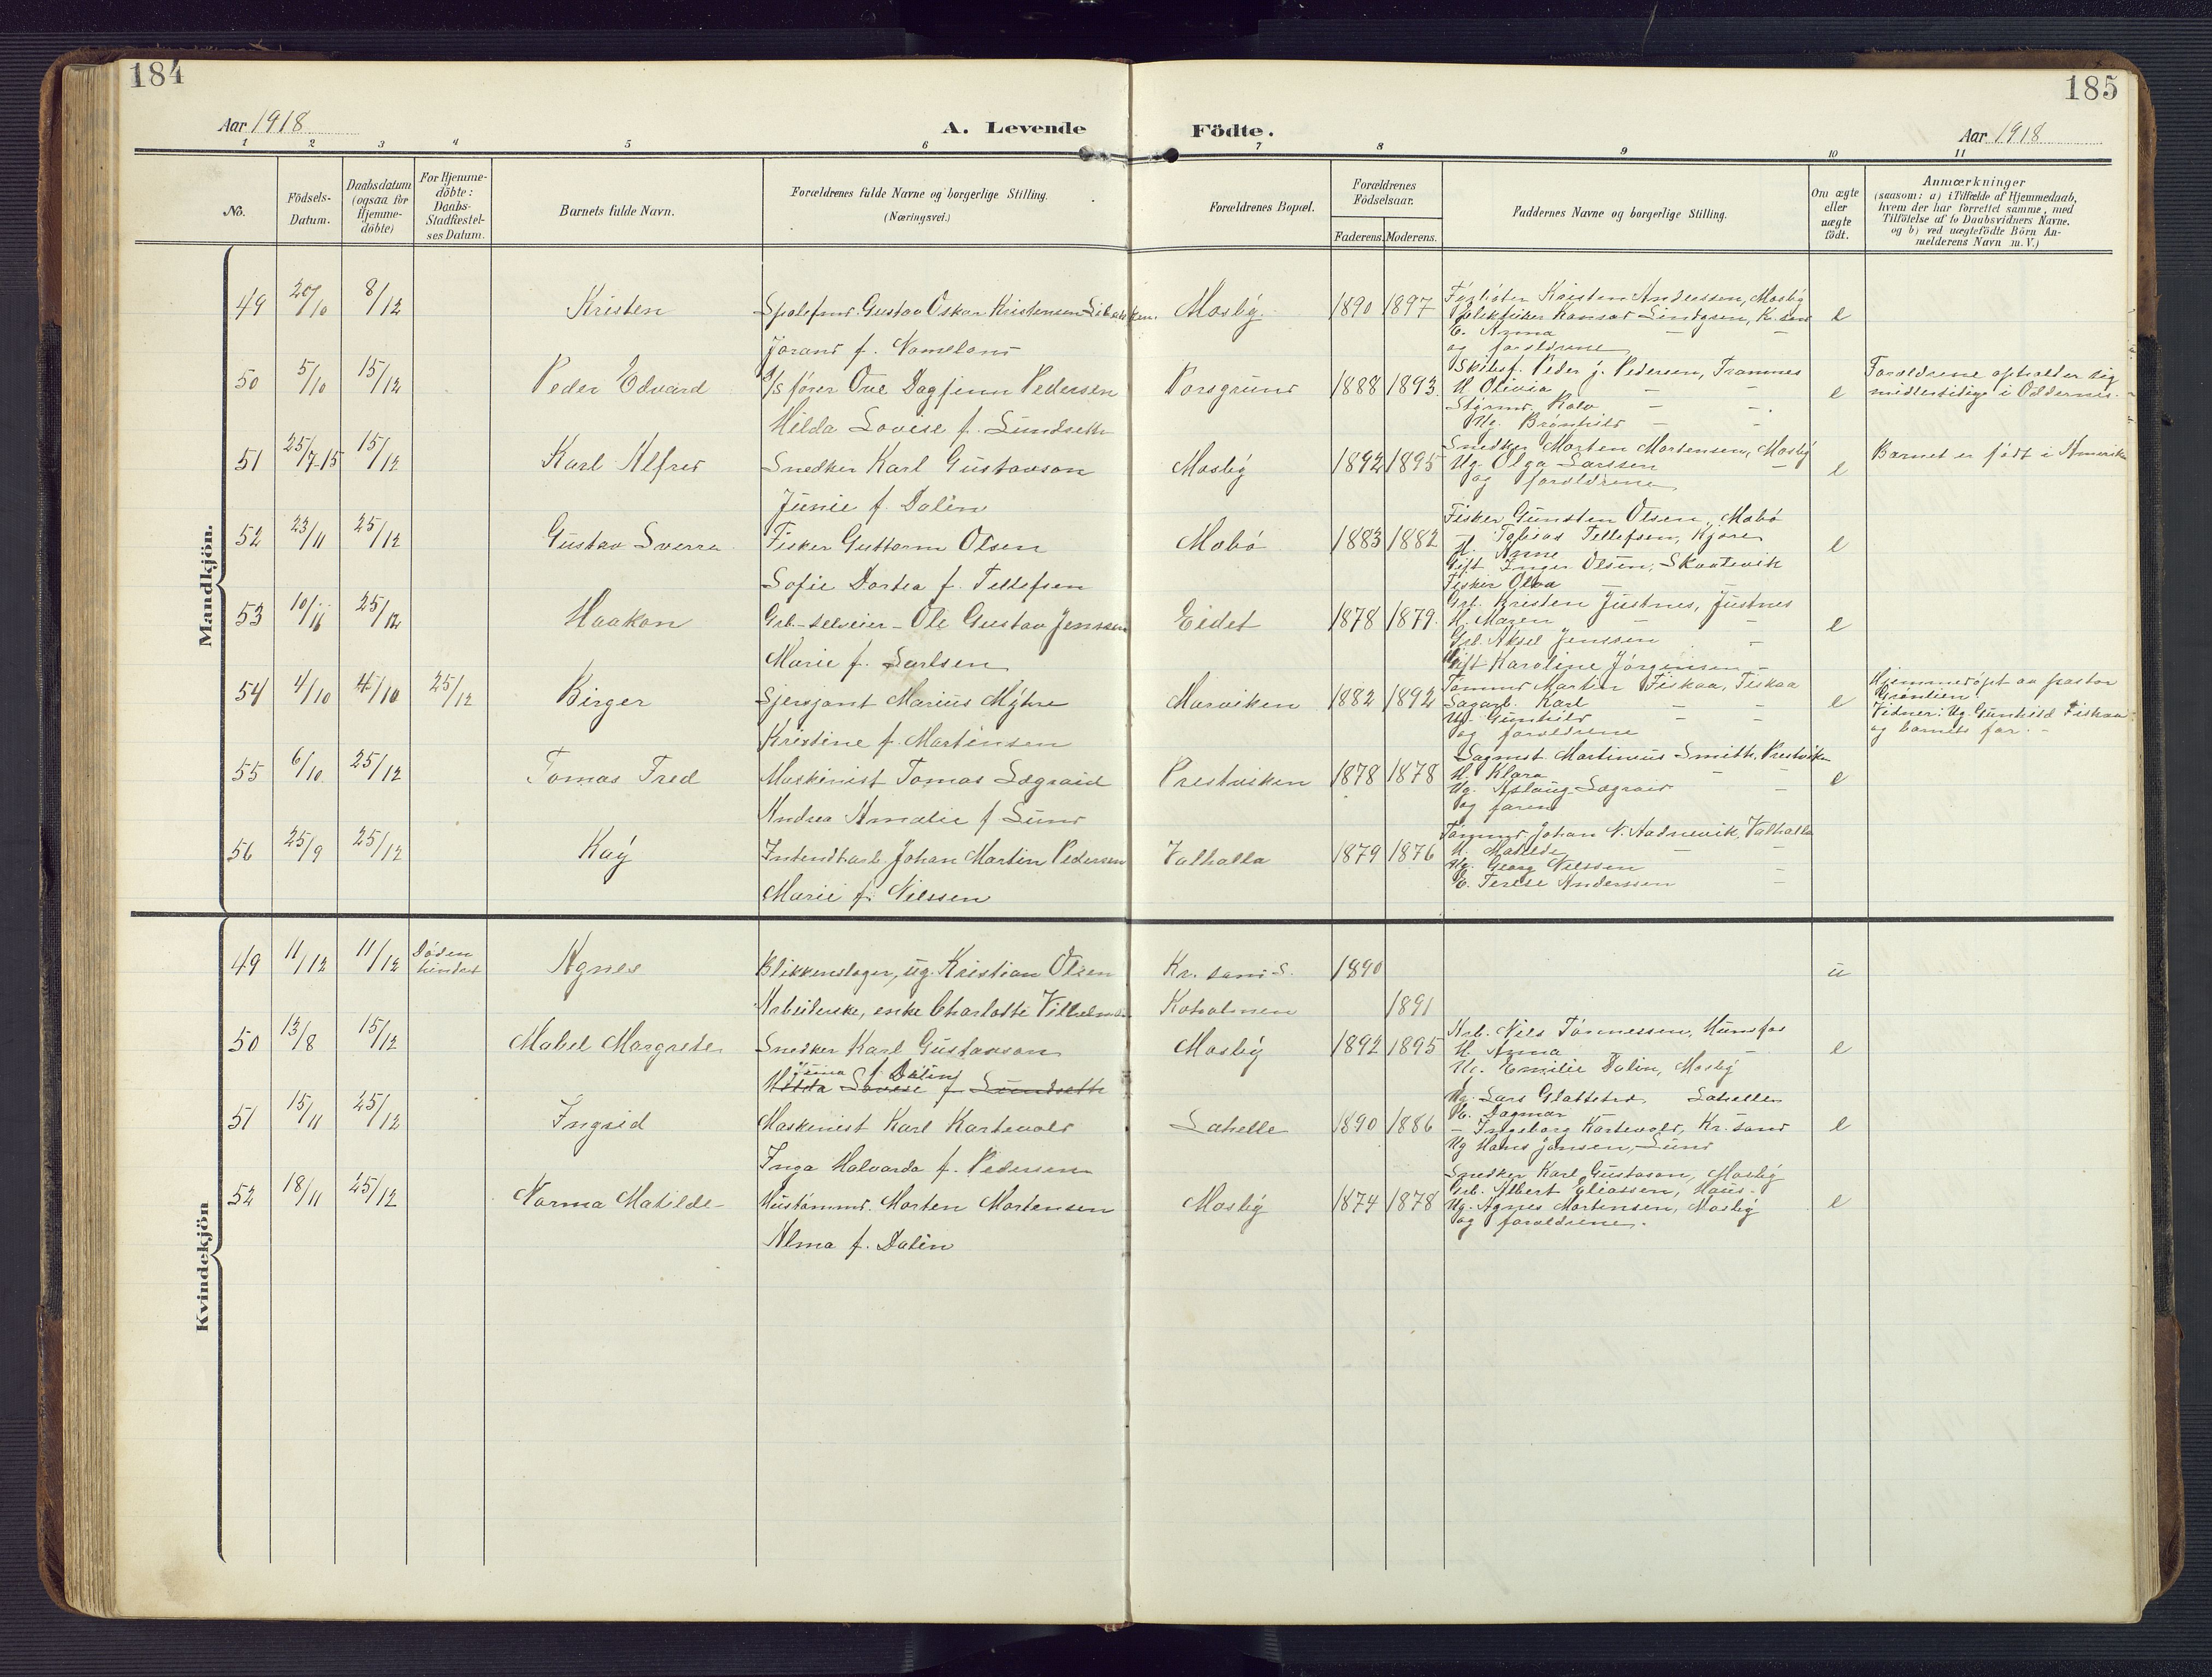 184
185
Aar 1918
A. Levende
Födte.
Aar 1918
1 2 3 4 5 6 7 8 9 10 11
No.
Födsels-
Datum.
Daabsdatum
(ogsaa for
Hjemme-
döbte)
For Hjemme-
döbte:
Daabs-
Stadfæstel-
ses Datum.
Barnets fulde Navn.
Forældrenes fulde Navne og borgerlige Stilling.
(Næringsvei.)
Forældrenes Bopæl.
Forældrenes
Födselsaar.
Faderens. Moderens.
Faddernes Navne og borgerlige Stilling.
Om ægte
eller
uægte
födt.
Anmærkninger
(saasom: a) i Tilfælde af Hjemmedaab,
hvem der har forrettet samme, med
Tilföielse af to Daabsvidners Navne,
og b) ved uægtefödte Börn An-
melderens Navn m. V.)
Mandkjön.
49 20/10 8/12 Kristen
Gustav Oskar Kristensen
f.
Mosby 1890 1897
Kristen Anderssen, Mosby
E. Anna — —
og forældrene
e
50 5/10 15/12 Peder Edvard
fører Ove Dagfinn Pedersen
Hilda Lovise f. Lundseth
Porsgrund 1888 1893
Skibsf. Peder j. Pedersen, Tromnes
H. Olivia — —
Styrmd. Rolv — —
Ug. Brønhild — —
e
Forældrene opholder sig
midlertidig i Oddernes.
51 25/7-15 15/12 Karl Alfred
Snedker Karl Gustavson
Junie f. Dalin
Mosby 1892 1895
Snedker Morten Mortensen, Mosby
Ug. Olga Larssen —
og forældrene
e
Barnet er født i Amerika
52 23/11 25/12 Gustav Sverre
Fisker Guttorm Olsen
Sofie Dortea f. Tellefsen
Mobø 1883 1882
Fisker Gunsten Olsen, Mobø
— Tobias Tellefsen, Kjøre
H. Anne — —
Gift Inger Olsen, Skaatevik
Fisker Olva —
e
53 10/11 25/12 Haakon
Grb.-selveier - Ole Gustav Jenssen
Marie f. Carlsen
Eidet 1878 1879
Grb. Kristen Justnes, Justnes
H. Maren — —
Grb. Aksel Jenssen —
Gift Karoline Jørgensen —
e
54 4/10 4/10 25/12 Birger
Sjersjant Marius Myhre
Kristine f. Martinsen
Marviken 1882 1892
Tømmd. Martin Fiskaa, Fiskaa
Sagarb. Karl — —
Ug. Gunhild — —
og forældrene
e
Hjemmedøpt av pastor
Grøntien.
Vidner: Ug. Gunhild Fiskaa
og barnets far. —
55 6/10 25/12 Tomas Fred
Maskinist Tomas Lægraid
Andrea Amalie f. Lund
Prestviken 1878 1878
Martinius Smith, Prestviken
H. Klara — —
Ug. Aslaug Lægraid —
og faren
e
56 25/9 25/12 Kay
Johan Martin Pedersen
Marie f. Nilssen
Valhalla 1879 1876
Tømmd. Johan N. Aadnevik, Valhalla
H. Matilde — —
Ug. Georg Nilssen —
E. Terese Anderssen —
Kvindekjön
49 11/12 11/12 Døden
hindret
Agnes
Blikkenslager, ug. Kristian Olsen
Arbeiderske, enke Charlotte
Kr. sand S. 1890
Koholmen 1891
u
50 13/8 15/12 Mabel Margrete
Snedker Karl Gustavson
Junia f. Dalin
Hilda Lovise f. Lundseth
Mosby 1892 1895
Arb. Nils Tønnessen, Hunsfos
H. Anna — —
Ug. Emilie Dalin, Mosby
e
51 15/11 25/12 Ingrid
Maskinist Karl Kartevold
Inga Halvarda f. Pedersen
Lahelle 1890 1886
Ug. Lars Glattetre, Lahelle
Dagmar
— Ingeborg Kartevold, Kr. sand
Ug Hans Jansen, Lund
e
52 18/11 25/12 Norma Matilde
Hustømmr. Morten Mortensen
Alma f. Dalin
Mosby 1874 1878
Snedker Karl Gustavson, Mosby
Grb. Albert Eliassen, Haus
Ug. Agnes Mortensen, Mosby
og forældrene.
e